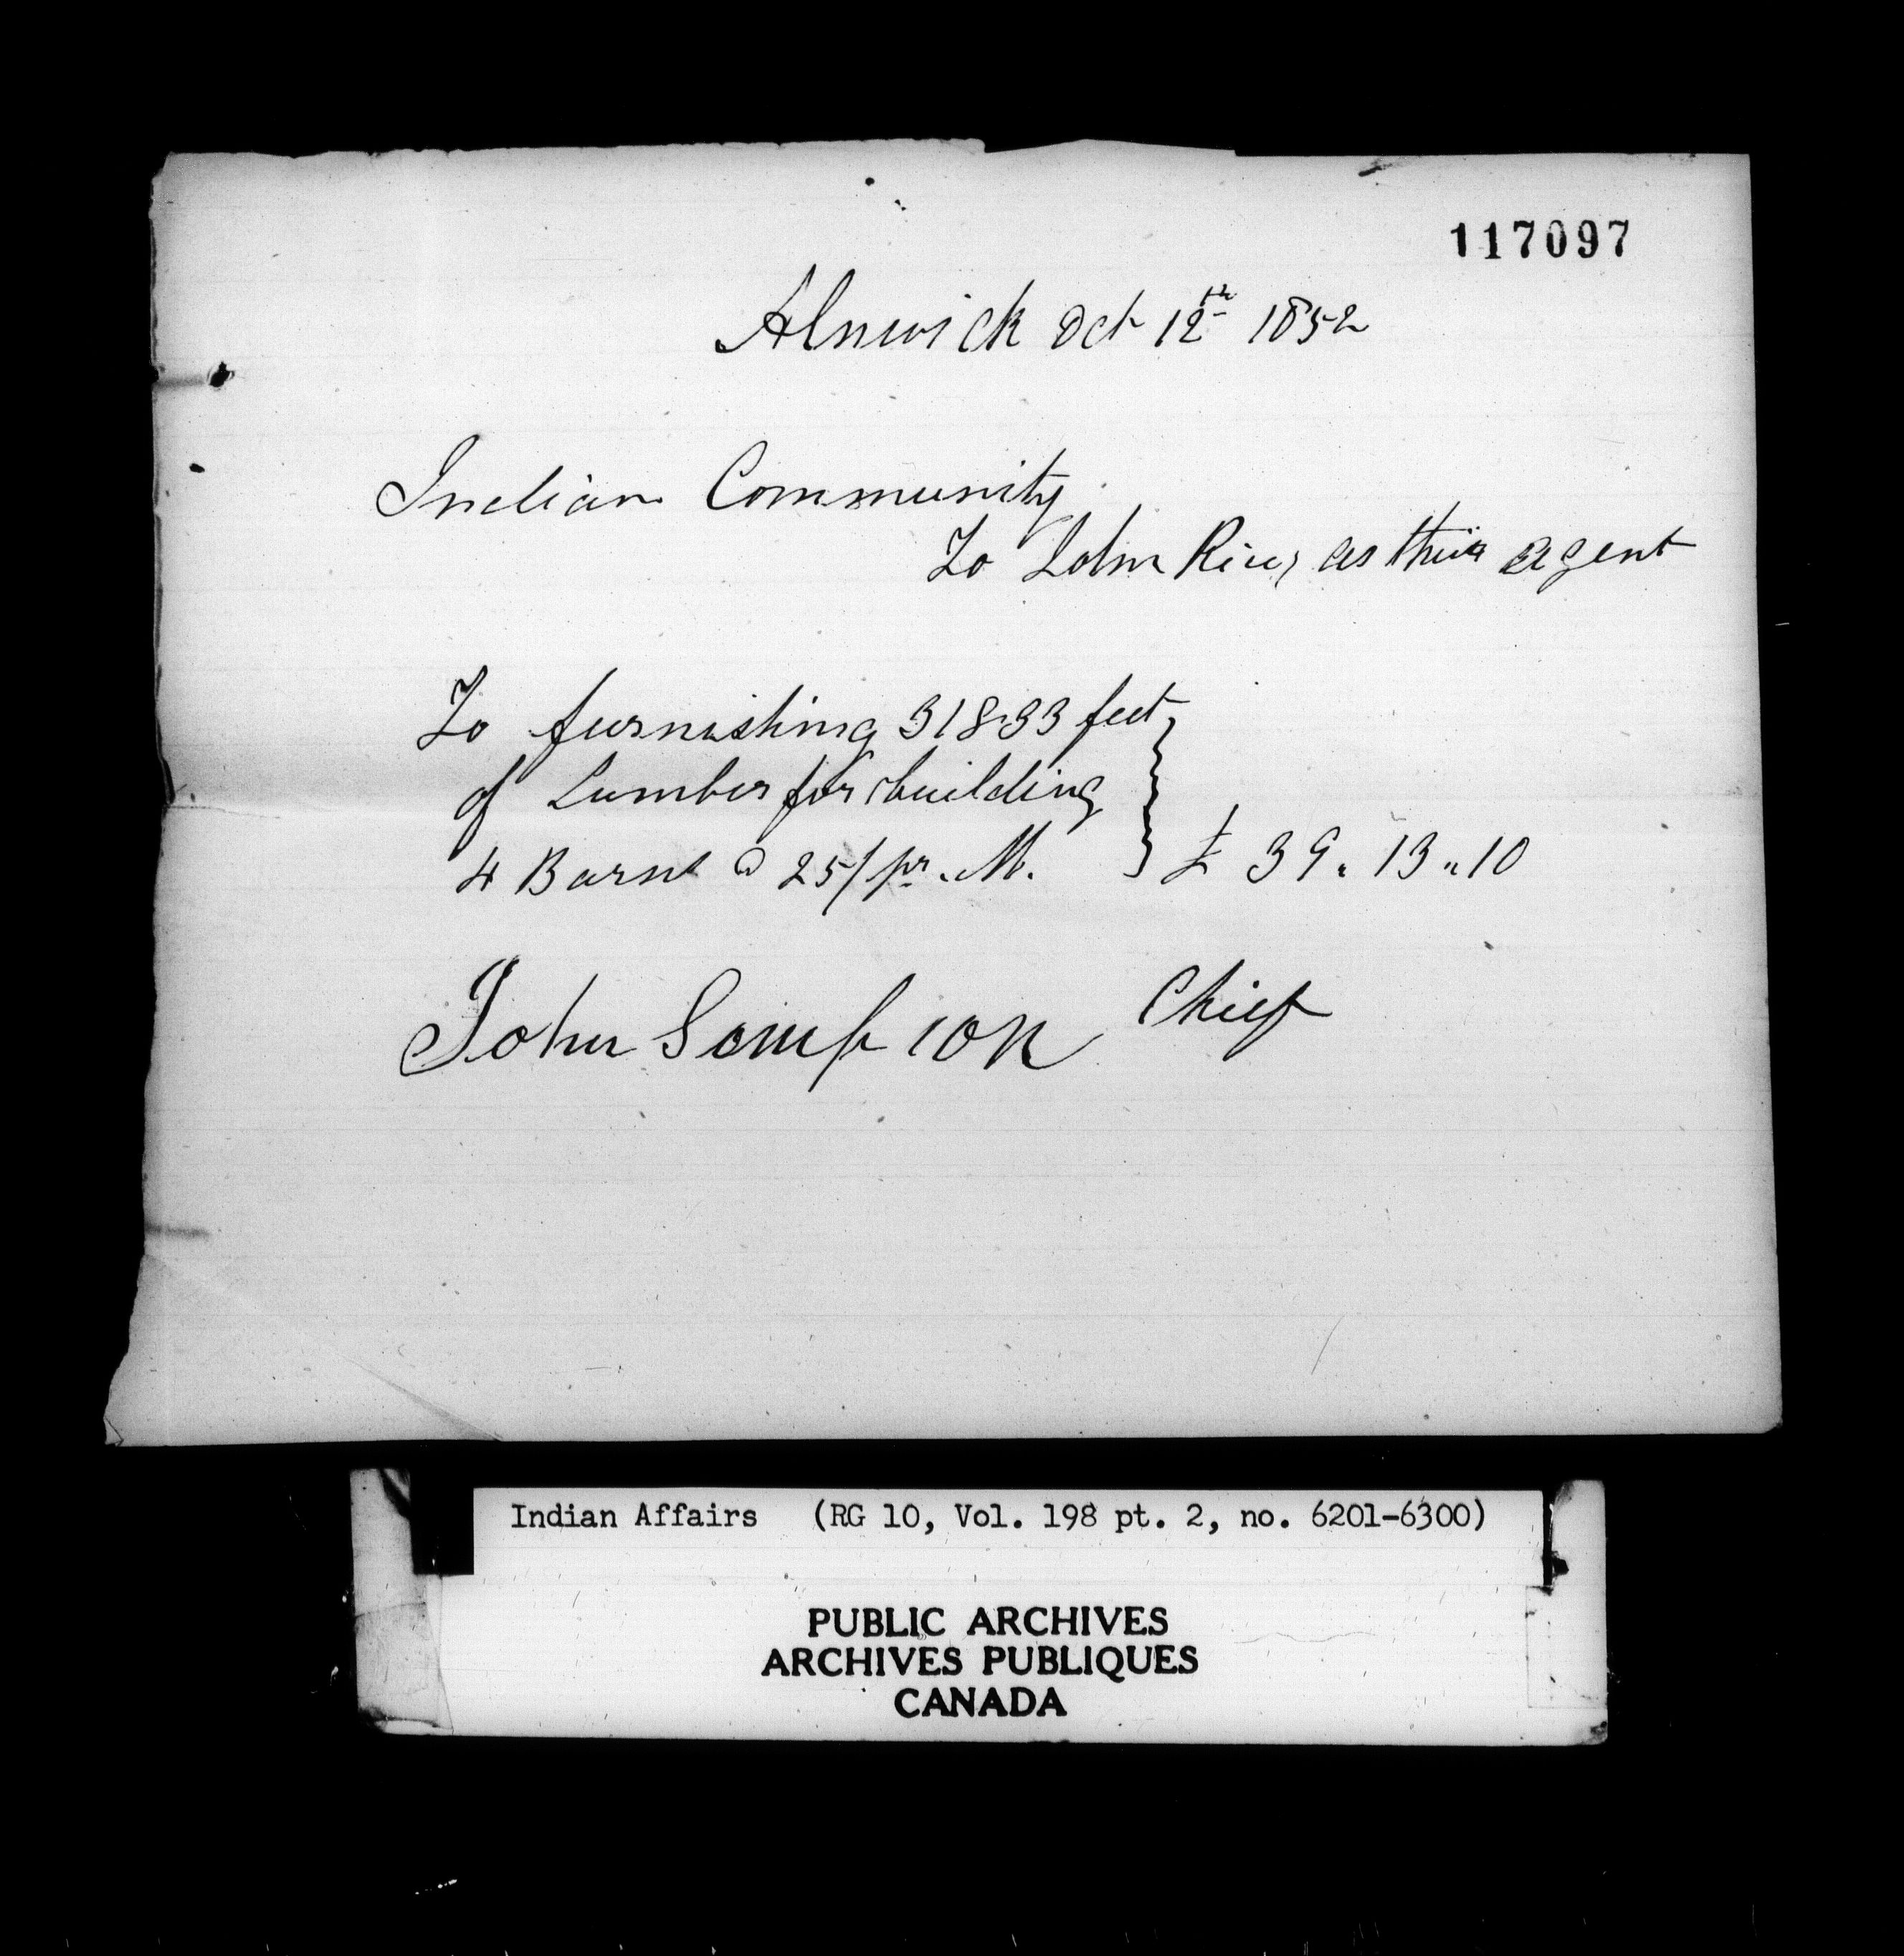 117097
Alnwick Oct 12th 1852
Indian Community
To John Rice, as their agent
To furnishing 31833 feet
of Lumber for building
4 Barns @ 25/ pr. M. } £ 39 " 13 " 10
John Sompson Chief
Indian Affairs (RG 10, Vol. 198 pt. 2, no. 6201-6300)
PUBLIC ARCHIVES
ARCHIVES PUBLIQUES
CANADA